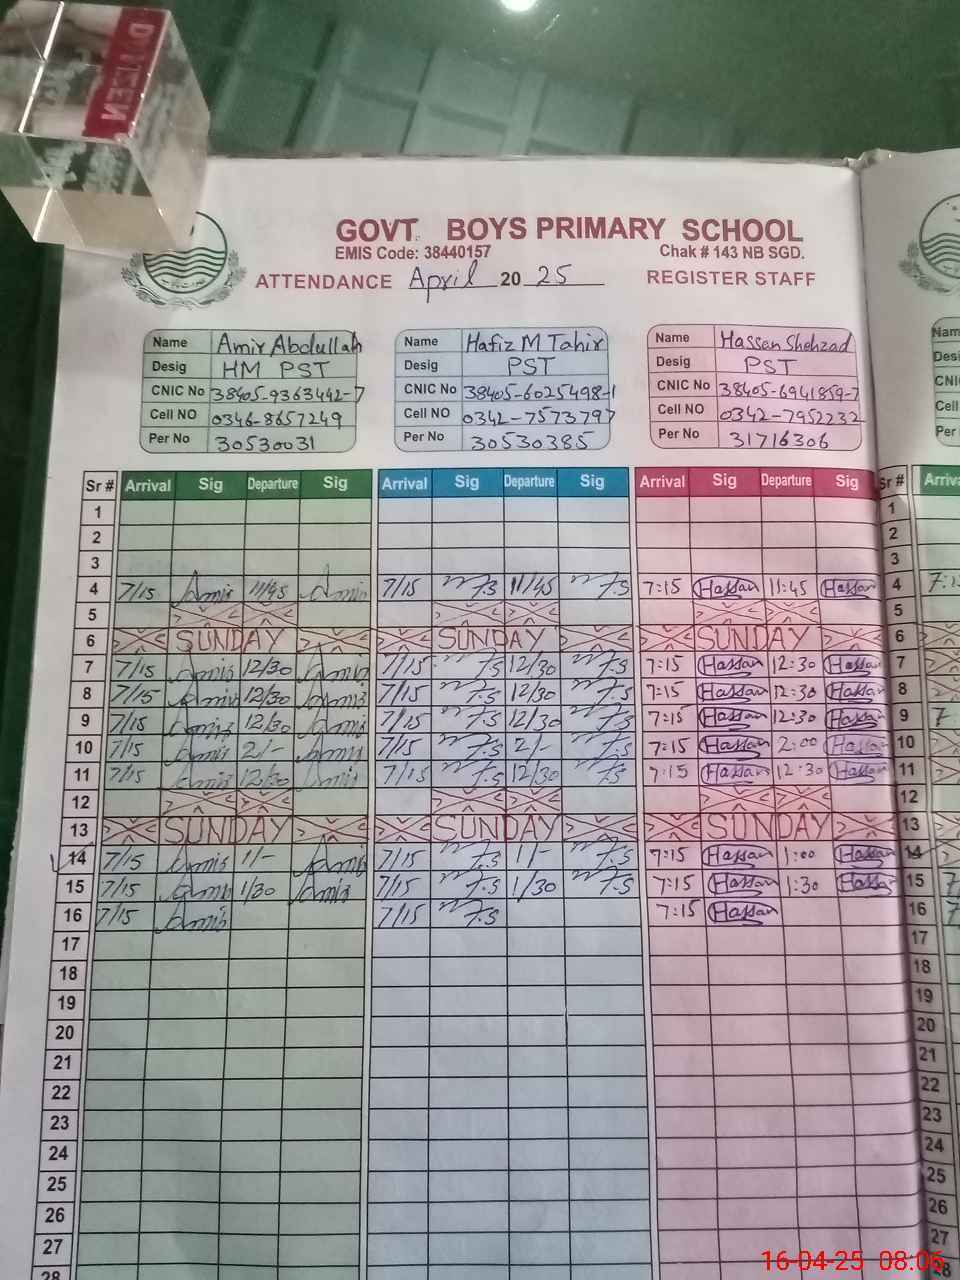 DNEEN
GOVT. BOYS PRIMARY SCHOOL
EMIS Code: 38440157 Chak # 143 NB SGD.
ATTENDANCE April 20 25 REGISTER STAFF
Name Amir Abdullah Name Hafiz M Tahir Name Hassan Shehzad Nam
Desig HM PST Desig PST Desig PST Desi
CNIC No 38405-9363442-7 CNIC No 38405-6025498-1 CNIC No 38405-6941859-7 CNI
Cell NO 0346-8657249 Cell NO 0342-7573797 Cell NO 0342-7952232 Cell
Per No 30530031 Per No 30530385 Per No 31716306 Per
Sr # Arrival Sig Departure Sig Arrival Sig Departure Sig Arrival Sig Departure Sig Sr # Arriva
1 1
2 2
3 3
4 7/15 Amir 11/45 Amir 7/15 T.S 11/45 T.S 7:15 Hassan 11:45 Hassan 4
5 5
6 SUNDAY SUNDAY SUNDAY 6
7 7/15 Amir 12/30 Amir 7/15 T.S 12/30 T.S 7:15 Hassan 12:30 Hassan 7
8 7/15 Amir 12/30 Amir 7/15 T.S 12/30 T.S 7:15 Hassan 12:30 Hassan 8
9 7/15 Amir 12/30 Amir 7/15 T.S 12/30 T.S 7:15 Hassan 12:30 Hassan 9
10 7/15 Amir 2/- Amir 7/15 T.S 2/- T.S 7:15 Hassan 2:00 Hassan 10
11 7/15 Amir 12/30 Amir 7/15 T.S 12/30 T.S 7:15 Hassan 12:30 Hassan 11
12 12
13 SUNDAY SUNDAY SUNDAY 13
14 7/15 Amir 1/- Amir 7/15 T.S 1/- T.S 7:15 Hassan 1:00 Hassan 14
15 7/15 Amir 1/30 Amir 7/15 T.S 1/30 T.S 7:15 Hassan 1:30 Hassan 15
16 7/15 Amir 7/15 T.S 7:15 Hassan 16
17 17
18 18
19 19
20 20
21 21
22 22
23 23
24 24
25 25
26 26
27 27
28 28
16-04-25 08:06